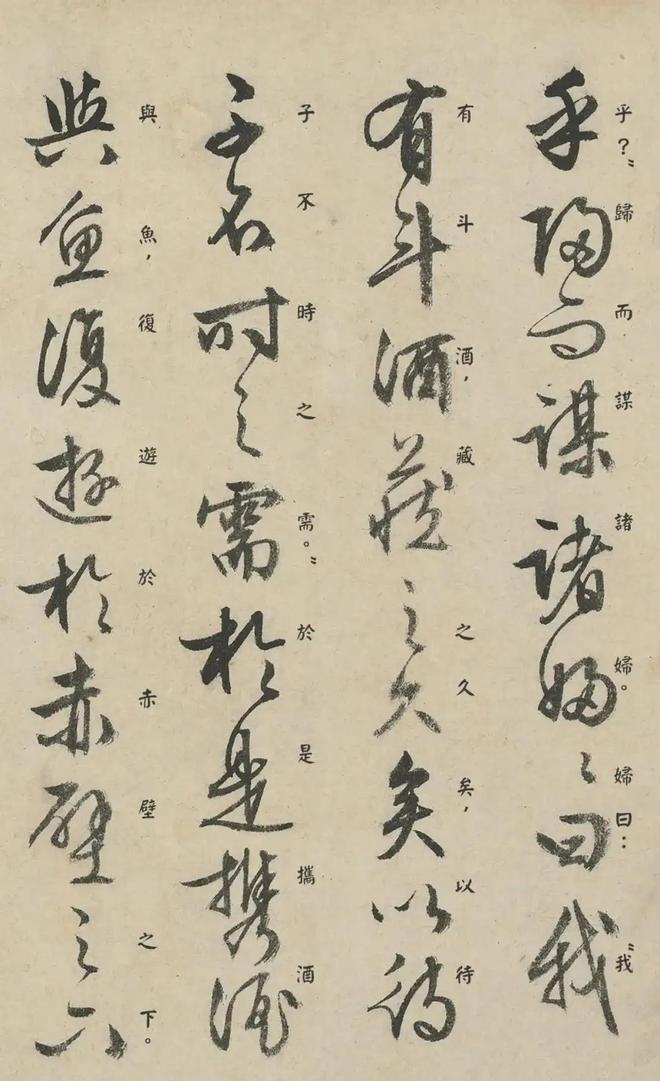 乎？”歸而謀諸婦。婦曰：“我
乎歸而謀諸婦〻曰我
有斗酒，藏之久矣，以待
有斗酒藏之久矣以待
子不時之需。”於是攜酒
子不時之需於是攜酒
與魚，復遊於赤壁之下。
與魚復遊於赤壁之下